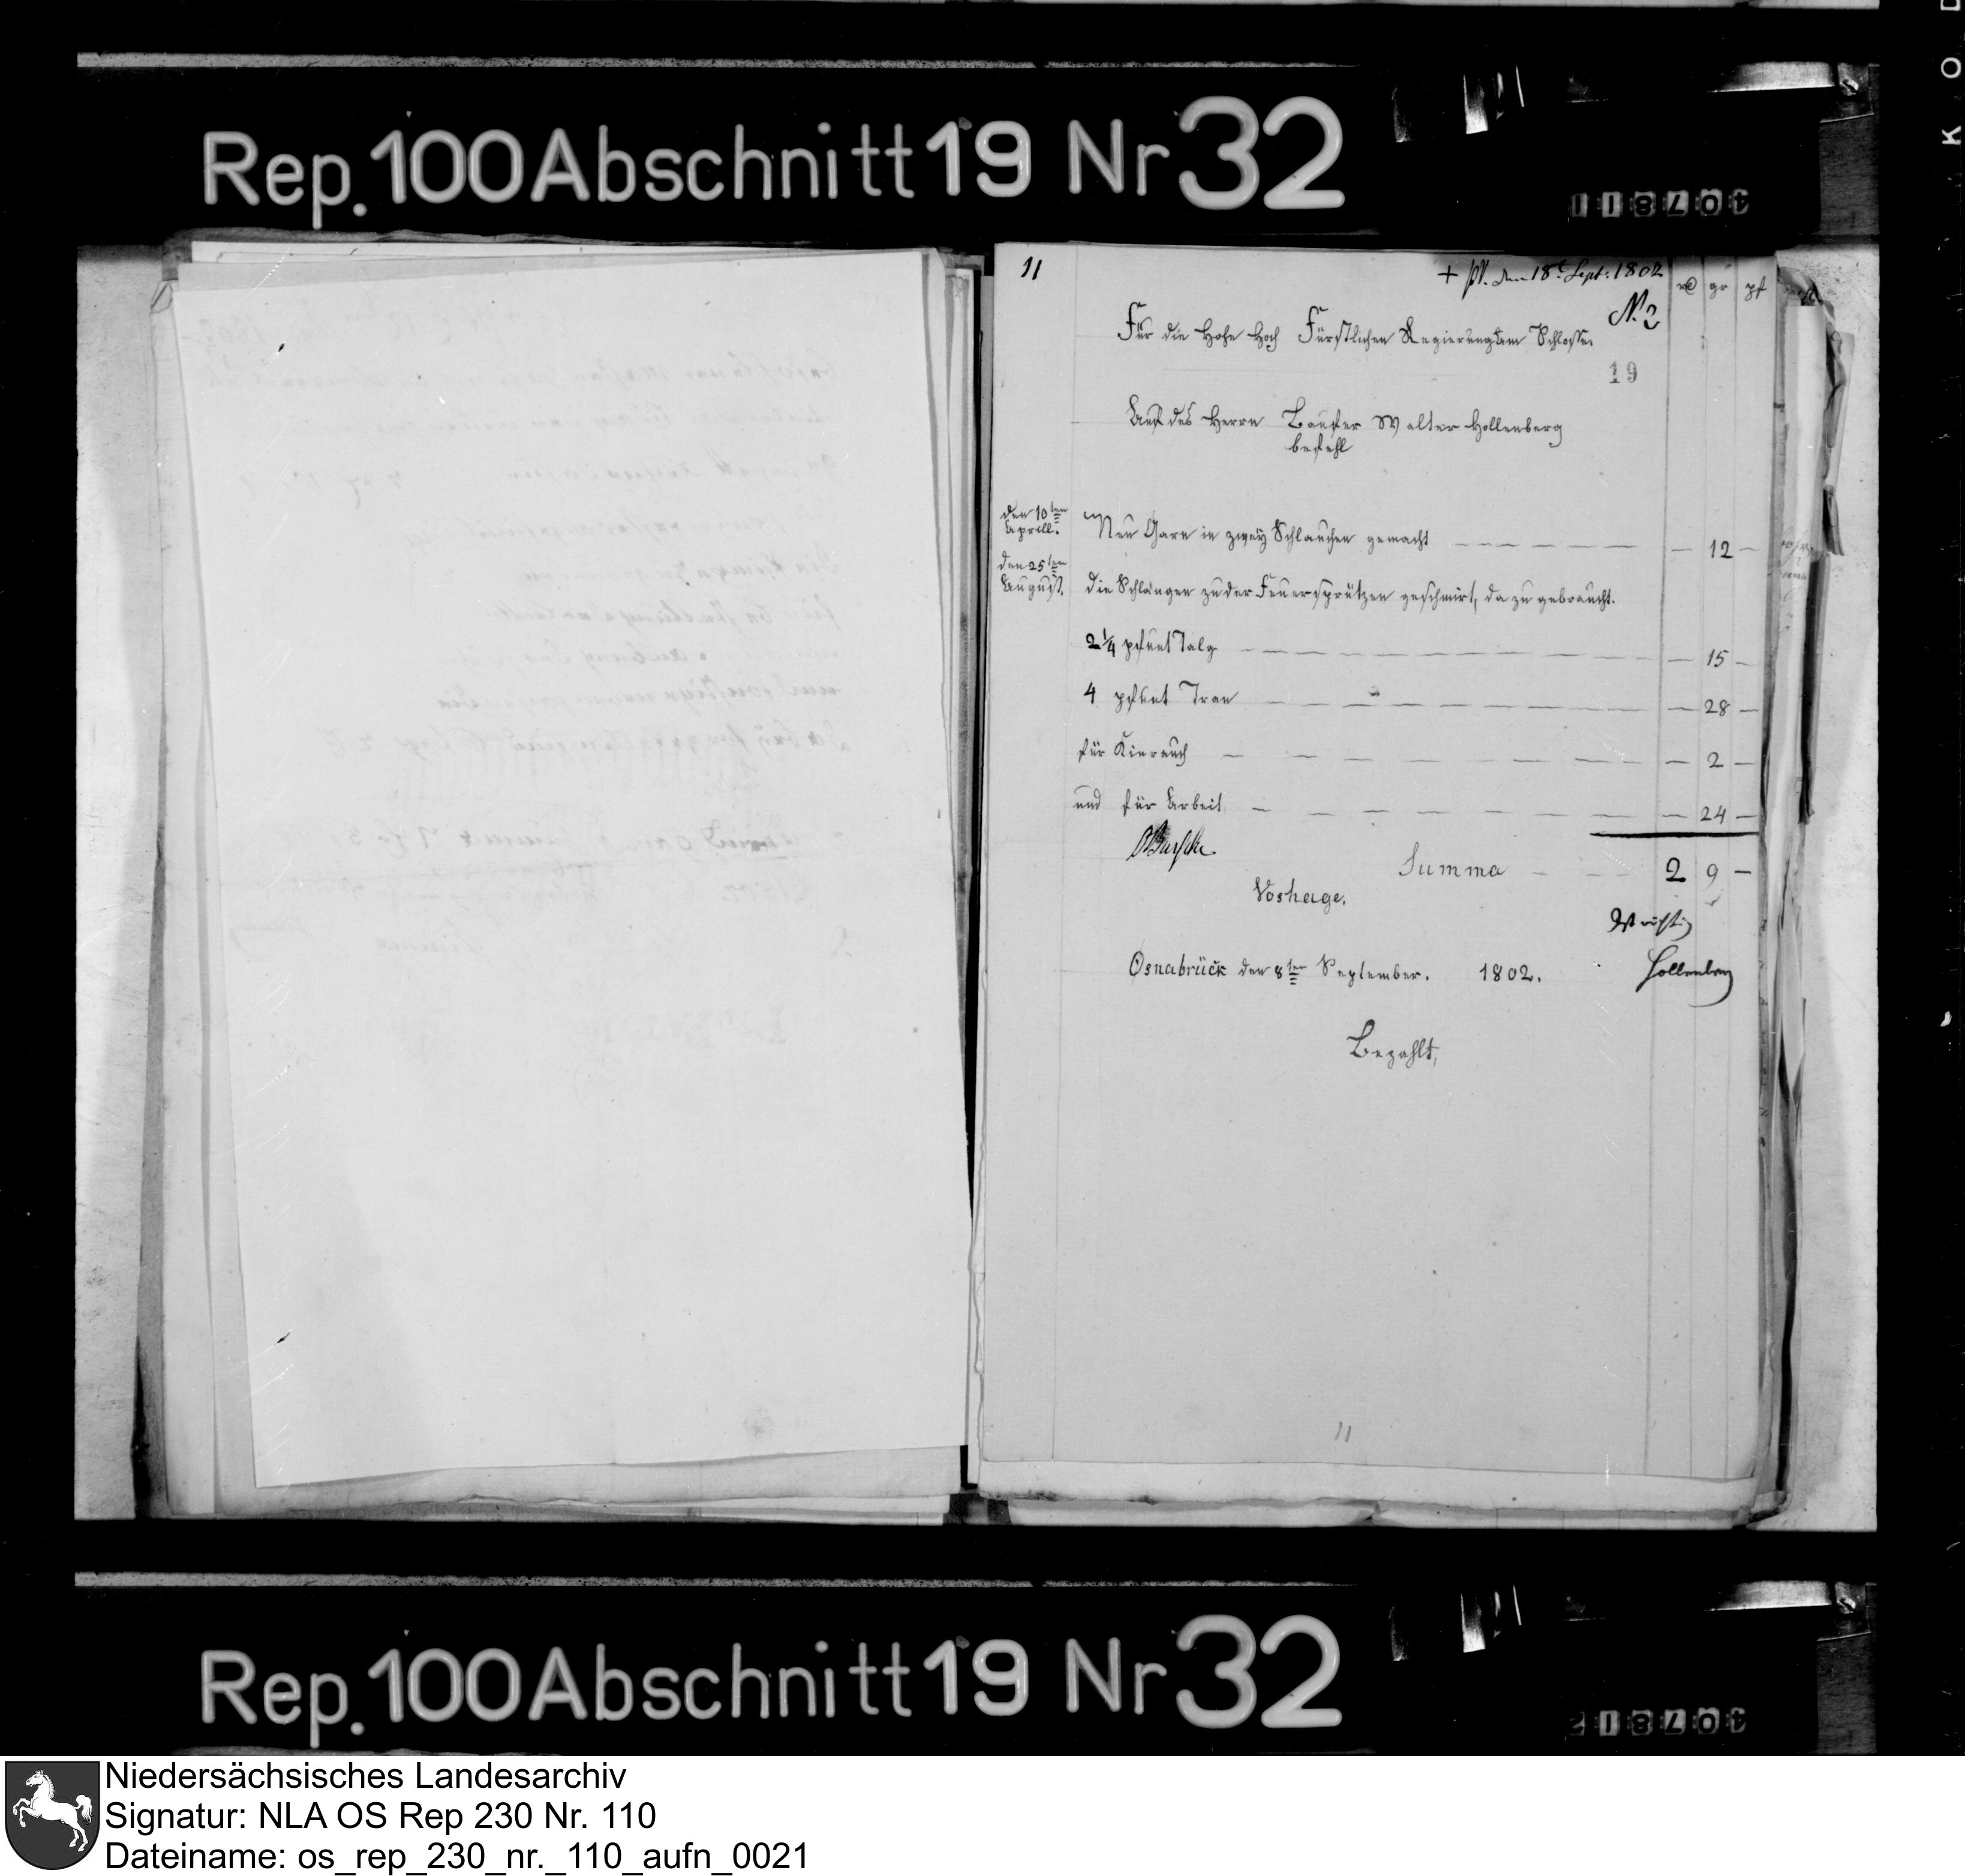 Rep. 100 Abschnitt 19 Nr 32
11
+ pr. den 18t Sept: 1802
rt gr pf
N. 2
Für die Hohe Hoch Fürstlichen Regierung am Schlosse.
19
Auf des Herrn Bauser Walter Hollenberg
befehl
den 10ten
Aprill.
Neu Garn in zwey Schlauchen gemacht — 12 —
den 25ten
August.
die Schlangen zu der Feuersprützen geschmirt, da zu gebraucht.
2 1/4 pfunt Talg — 15 —
4 pfunt Tran — 28 —
für Kinrauch — 2 —
und für Arbeit — 24 —
Summa 2 9 —
Voshage.
Ist richtig
Osnabrück den 8ten September. 1802.
Hollenberg
Bezahlt,
11
Rep. 100 Abschnitt 19 Nr 32
Niedersächsisches Landesarchiv
Signatur: NLA OS Rep 230 Nr. 110
Dateiname: os_rep_230_nr._110_aufn_0021